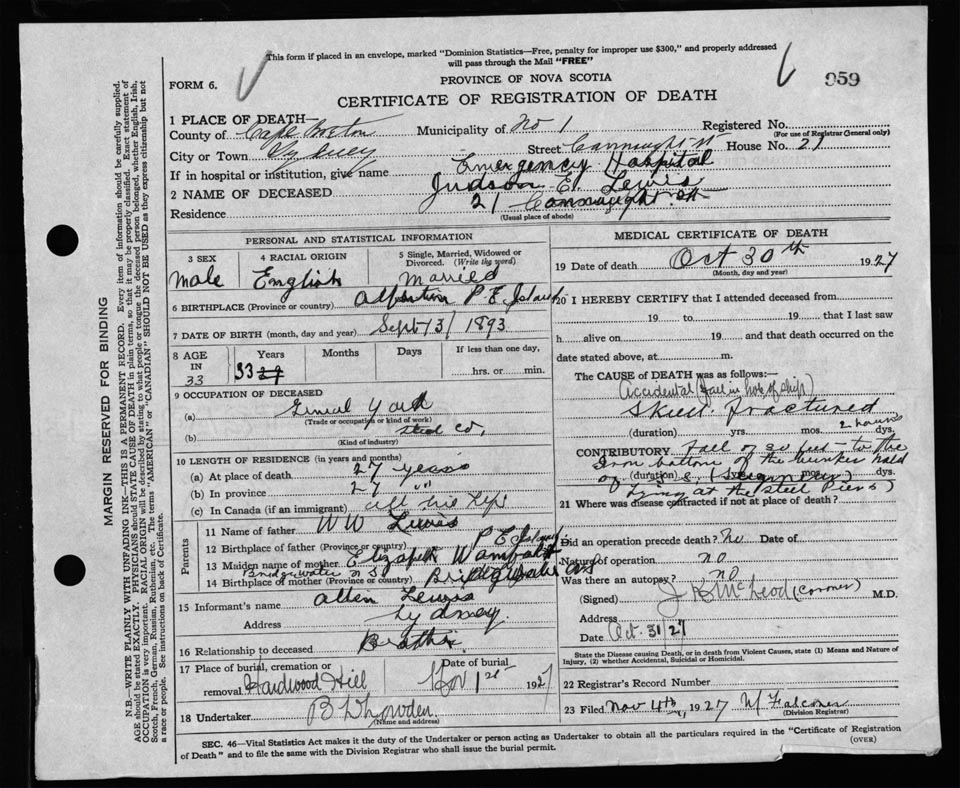 This form if placed in an envelope, marked "Dominion Statistics—Free, penalty for improper use $300," and properly addressed
will pass through the Mail "FREE"
FORM 6.
PROVINCE OF NOVA SCOTIA
959
CERTIFICATE OF REGISTRATION OF DEATH
1 PLACE OF DEATH—
County of Cape Breton Municipality of No 1 Registered No.
(For use of Registrar General only)
City or Town Sydney Street Connaught St House No. 21
If in hospital or institution, give name Emergency Hospital
2 NAME OF DECEASED Judson E. Lewis
Residence 21 Connaught St
(Usual place of abode)
PERSONAL AND STATISTICAL INFORMATION
3 SEX 4 RACIAL ORIGIN 5 Single, Married, Widowed or Divorced. (Write the word)
Male English Married
6 BIRTHPLACE (Province or country) P. E. Island
7 DATE OF BIRTH (month, day and year) Sept 13/1893
8 AGE IN Years Months Days If less than one day,
33 33 hrs. or min.
9 OCCUPATION OF DECEASED
(a) Yard
(Trade or occupation or kind of work)
(b) Steel Co,
(Kind of industry)
10 LENGTH OF RESIDENCE (in years and months)
(a) At place of death 27 years
(b) In province 27 "
(c) In Canada (if an immigrant) all his life
Parents
11 Name of father W W Lewis
12 Birthplace of father (Province or country) P E Island
13 Maiden name of mother Elizabeth
14 Birthplace of mother (Province or country) Bridgewater N S
15 Informant's name Allen Lewis
Address Sydney
16 Relationship to deceased Brother
17 Place of burial, cremation or removal Hardwood Hill Date of burial Nov 1st 1927
18 Undertaker
(Name and address)
MEDICAL CERTIFICATE OF DEATH
19 Date of death Oct 30th 1927
(Month, day and year)
20 I HEREBY CERTIFY that I attended deceased from
19 to 19 that I last saw
h alive on 19 and that death occurred on the
date stated above, at m.
The CAUSE of DEATH was as follows:—
Accidental (fall in hold of ship)
Skull fractured
(duration) yrs. mos. 2 hours dys.
CONTRIBUTORY Fall of 30 feet to the
iron bottom of the bunker hold
(duration) yrs. mos. dys.
of S.S.
lying at the steel piers)
21 Where was disease contracted if not at place of death?
Did an operation precede death? No Date of
Nature of operation no
Was there an autopsy? no
(Signed) J K McLeod (Coroner) M.D.
Address
Date Oct. 31/27
State the Disease causing Death, or in death from Violent Causes, state (1) Means and Nature of
Injury, (2) whether Accidental, Suicidal or Homicidal.
22 Registrar's Record Number
23 Filed Nov 4th, 1927
(Division Registrar)
SEC. 46—Vital Statistics Act makes it the duty of the Undertaker or person acting as Undertaker to obtain all the particulars required in the "Certificate of Registration
of Death" and to file the same with the Division Registrar who shall issue the burial permit.
(OVER)
MARGIN RESERVED FOR BINDING
N.B.—WRITE PLAINLY WITH UNFADING INK—THIS IS A PERMANENT RECORD. Every item of information should be carefully supplied.
AGE should be stated EXACTLY. PHYSICIANS should STATE CAUSE OF DEATH in plain terms, so that it may be properly classified. Exact statement of
OCCUPATION is very important. RACIAL ORIGIN will be described by stating to what people or tongue the deceased person belonged, whether English, Irish,
Scotch, French, German, Russian, Ruthenian, etc. The terms "AMERICAN" or "CANADIAN" SHOULD NOT BE USED as they express citizenship but not
a race or people. See instructions on back of Certificate.